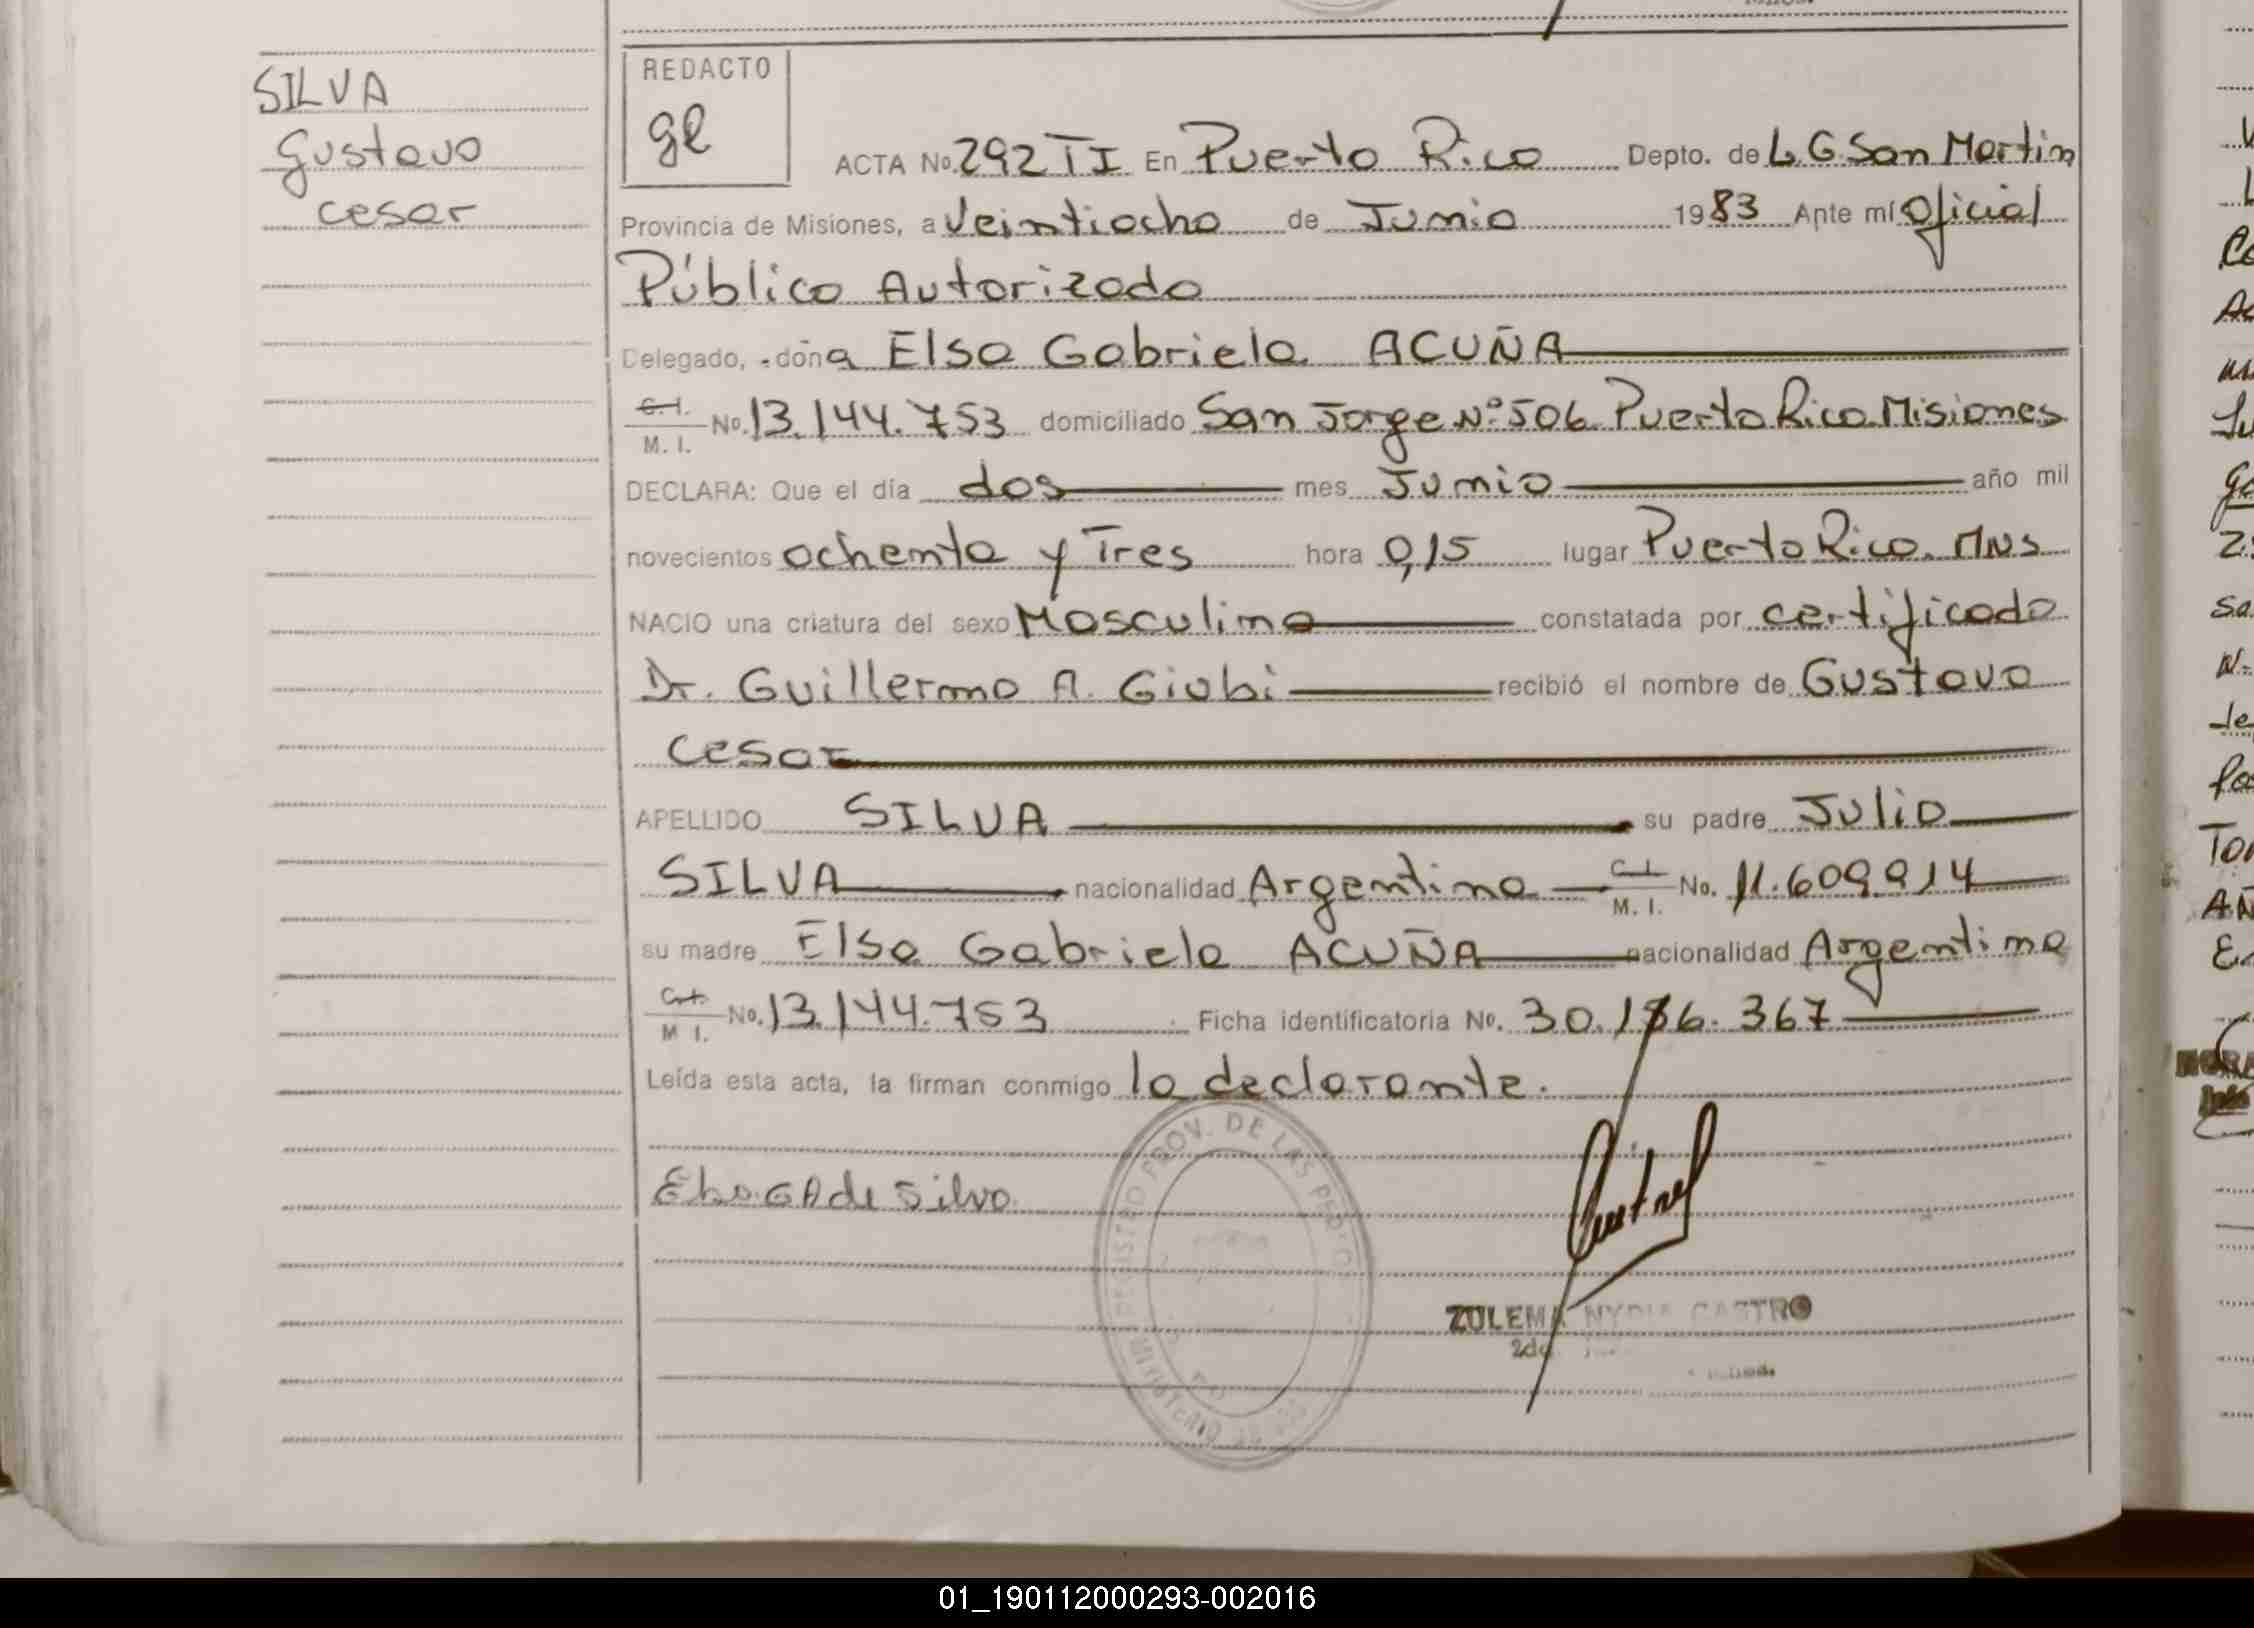 SILVA
Gustavo
cesar
REDACTO
ACTA No. 292 TI En Puerto Rico Depto. de L.G.San Martin
Provincia de Misiones, a Veintiocho de Junio 1983 Ante mí Oficial
Público Autorizado
Delegado, doña Elsa Gabriela ACUÑA
C. I.
M. I. No. 13.144.753 domiciliado San Jorge Nº 506 Puerto Rico Misiones
DECLARA: Que el día dos mes Junio año mil
novecientos ochenta y Tres hora 0,15 lugar Puerto Rico. MNS
NACIO una criatura del sexo Masculino constatada por certificado
Dr. Guillermo A. Giubi recibió el nombre de Gustavo
cesar
APELLIDO SILVA su padre Julio
SILVA nacionalidad Argentina C. I.
M. I. No. 11.609.914
su madre Elsa Gabriela ACUÑA nacionalidad Argentina
C. I.
M I. No. 13.144.753 Ficha identificatoria No. 30.186.367
Leída esta acta, la firman conmigo la declarante.
REGISTRO PROV. DE LAS PERSO
MINISTERIO DE
Elsa G A de Silva
ZULEMA NYDIA CASTRO
01_190112000293-002016